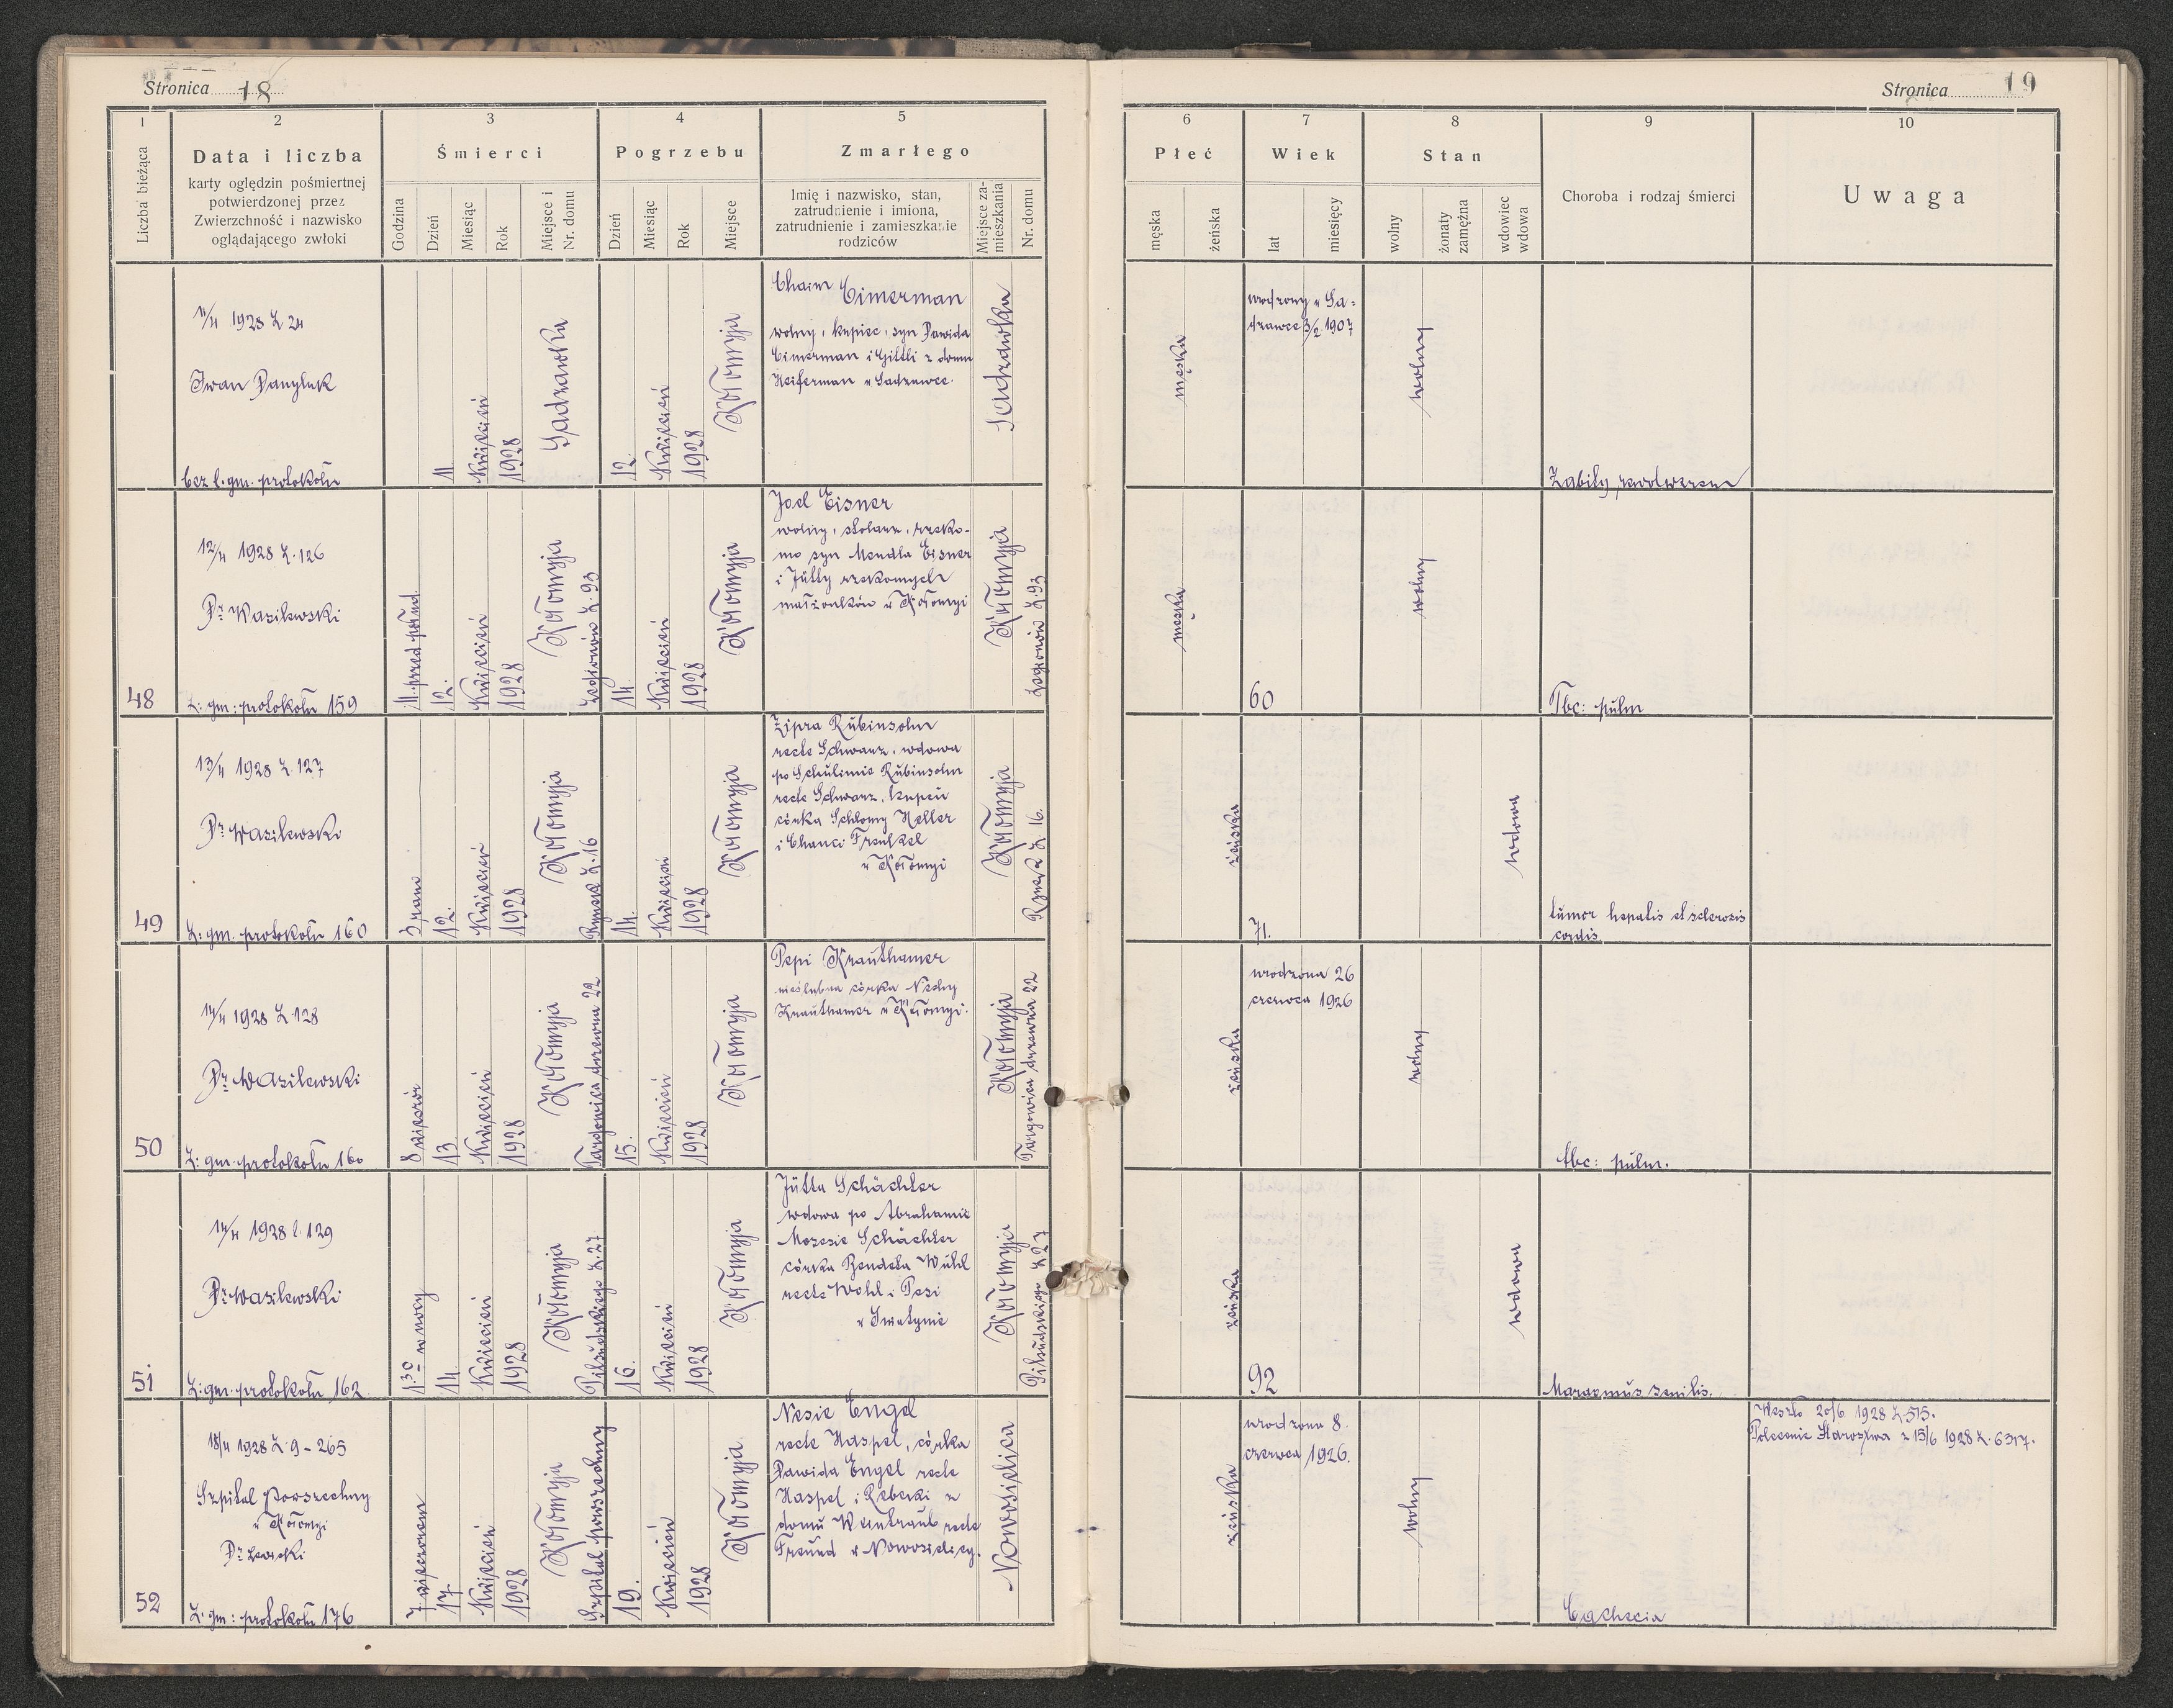 Stronica 18
1
2
3
4
5
Liczba bieżąca
Data i liczba
karty oględzin pośmiertnej
potwierdzonej przez
Zwierzchność i nazwisko
oglądającego zwłoki
Śmierci
Godzina
Dzień
Miesiąc
Rok
Miejsce i
Nr. domu
Pogrzebu
Dzień
Miesiąc
Rok
Miejsce
Zmarłego
Imię i nazwisko, stan,
zatrudnienie i imiona,
zatrudnienie i zamieszkanie
rodziców
Miejsce za-
mieszkania
Nr. domu
11/4 1928 L 24
Iwan Danyluk
bez l. gm. protokołu
11
Kwiecień
1928
Sadzawka
12.
Kwiecień
1928
Kołomyja
Chaim Cimerman
wolny, kupiec, syn Dawida
Cimerman i Gittli z domu
Heiferman w Sadzawce.
Sadzawka
48
12/4 1928 L. 126
Dr Wasilewski
L: gm: protokołu 159
11. przed połud.
12.
Kwiecień
1928
Kołomyja
Legionów L. 93
14.
Kwiecień
1928
Kołomyja
Joel Eisner
wolny, stolarz, rzeko-
mo syn Mendla Eisner
i Jütty rzekomych
małżonków w Kołomyi
Kołomyja
Legionów L. 93
49
13/4 1928 L. 127
Dr Wasilewski
L: gm. protokołu 160
3 rano
12.
Kwiecień
1928
Kołomyja
Rynek L. 16
14.
Kwiecień
1928
Kołomyja
Zipra Rubinsohn
recte Schwarz, wdowa
po Schulimie Rubinsohn
recte Schwarz, kupcu
córka Schlomy Heller
i Chanci Frenkel
w Kołomyi
Kołomyja
Rynek L. 16.
50
14/4 1928 L. 128
Dr Wasilewski
L: gm. protokołu 160
8 wieczór
13
Kwiecień
1928
Kołomyja
Targowica drzewna 22
15.
Kwiecień
1928
Kołomyja
Pepi Krauthamer
nieślubna córka Nechy
Krauthamer w Kołomyi.
Kołomyja
Targowica drzewna 22
51
14/4 1928 l. 129
Dr Wasilewski
L: gm. protokołu 162
1 30 w nocy
14.
Kwiecień
1928
Kołomyja
Piłsudskiego L. 27
16.
Kwiecień
1928
Kołomyja
Jütta Schächter
wdowa po Abrahamie
Mozesie Schächter
córka Bendeta Wühl
recte Wohl i Pesi
w Śniatynie
Kołomyja
Piłsudskiego L 27
52
18/4 1928 L. 9 - 265
Szpital Powszechny
w Kołomyi
L. gm: protokołu 176
7 wieczorem
17
Kwiecień
1928
Kołomyja
Szpital powszechny
19.
Kwiecień
1928
Kołomyja
Nesie Engel
recte Haspel, córka
Dawida Engel recte
Haspel i Rebeki z
domu Weintraub recte
Freund w Nowosielicy.
Nowosielica
Stronica 19
6
7
8
9
10
Płeć
męska
żeńska
Wiek
lat
miesięcy
Stan
wolny
żonaty
zamężna
wdowiec
wdowa
Choroba i rodzaj śmierci
Uwaga
męska
urodzony w Sa-
dzawce 3/2 1907
wolny
Zabity rewolwerem
męska
60
wolny
Tbc: pulm
żeńska
71.
wdowa
tumor hepatis et sclerosis
cordis
żeńska
urodzona 26
czerwca 1926
wolny
tbc: pulm.
żeńska
92
wdowa
Marazmus senilis.
żeńska
urodzona 8.
czerwca 1926.
wolny
Cachecia
Weszło 20/6 1928 L. 515.
Polecenie Starostwa z 15/6 1928 L. 6317.